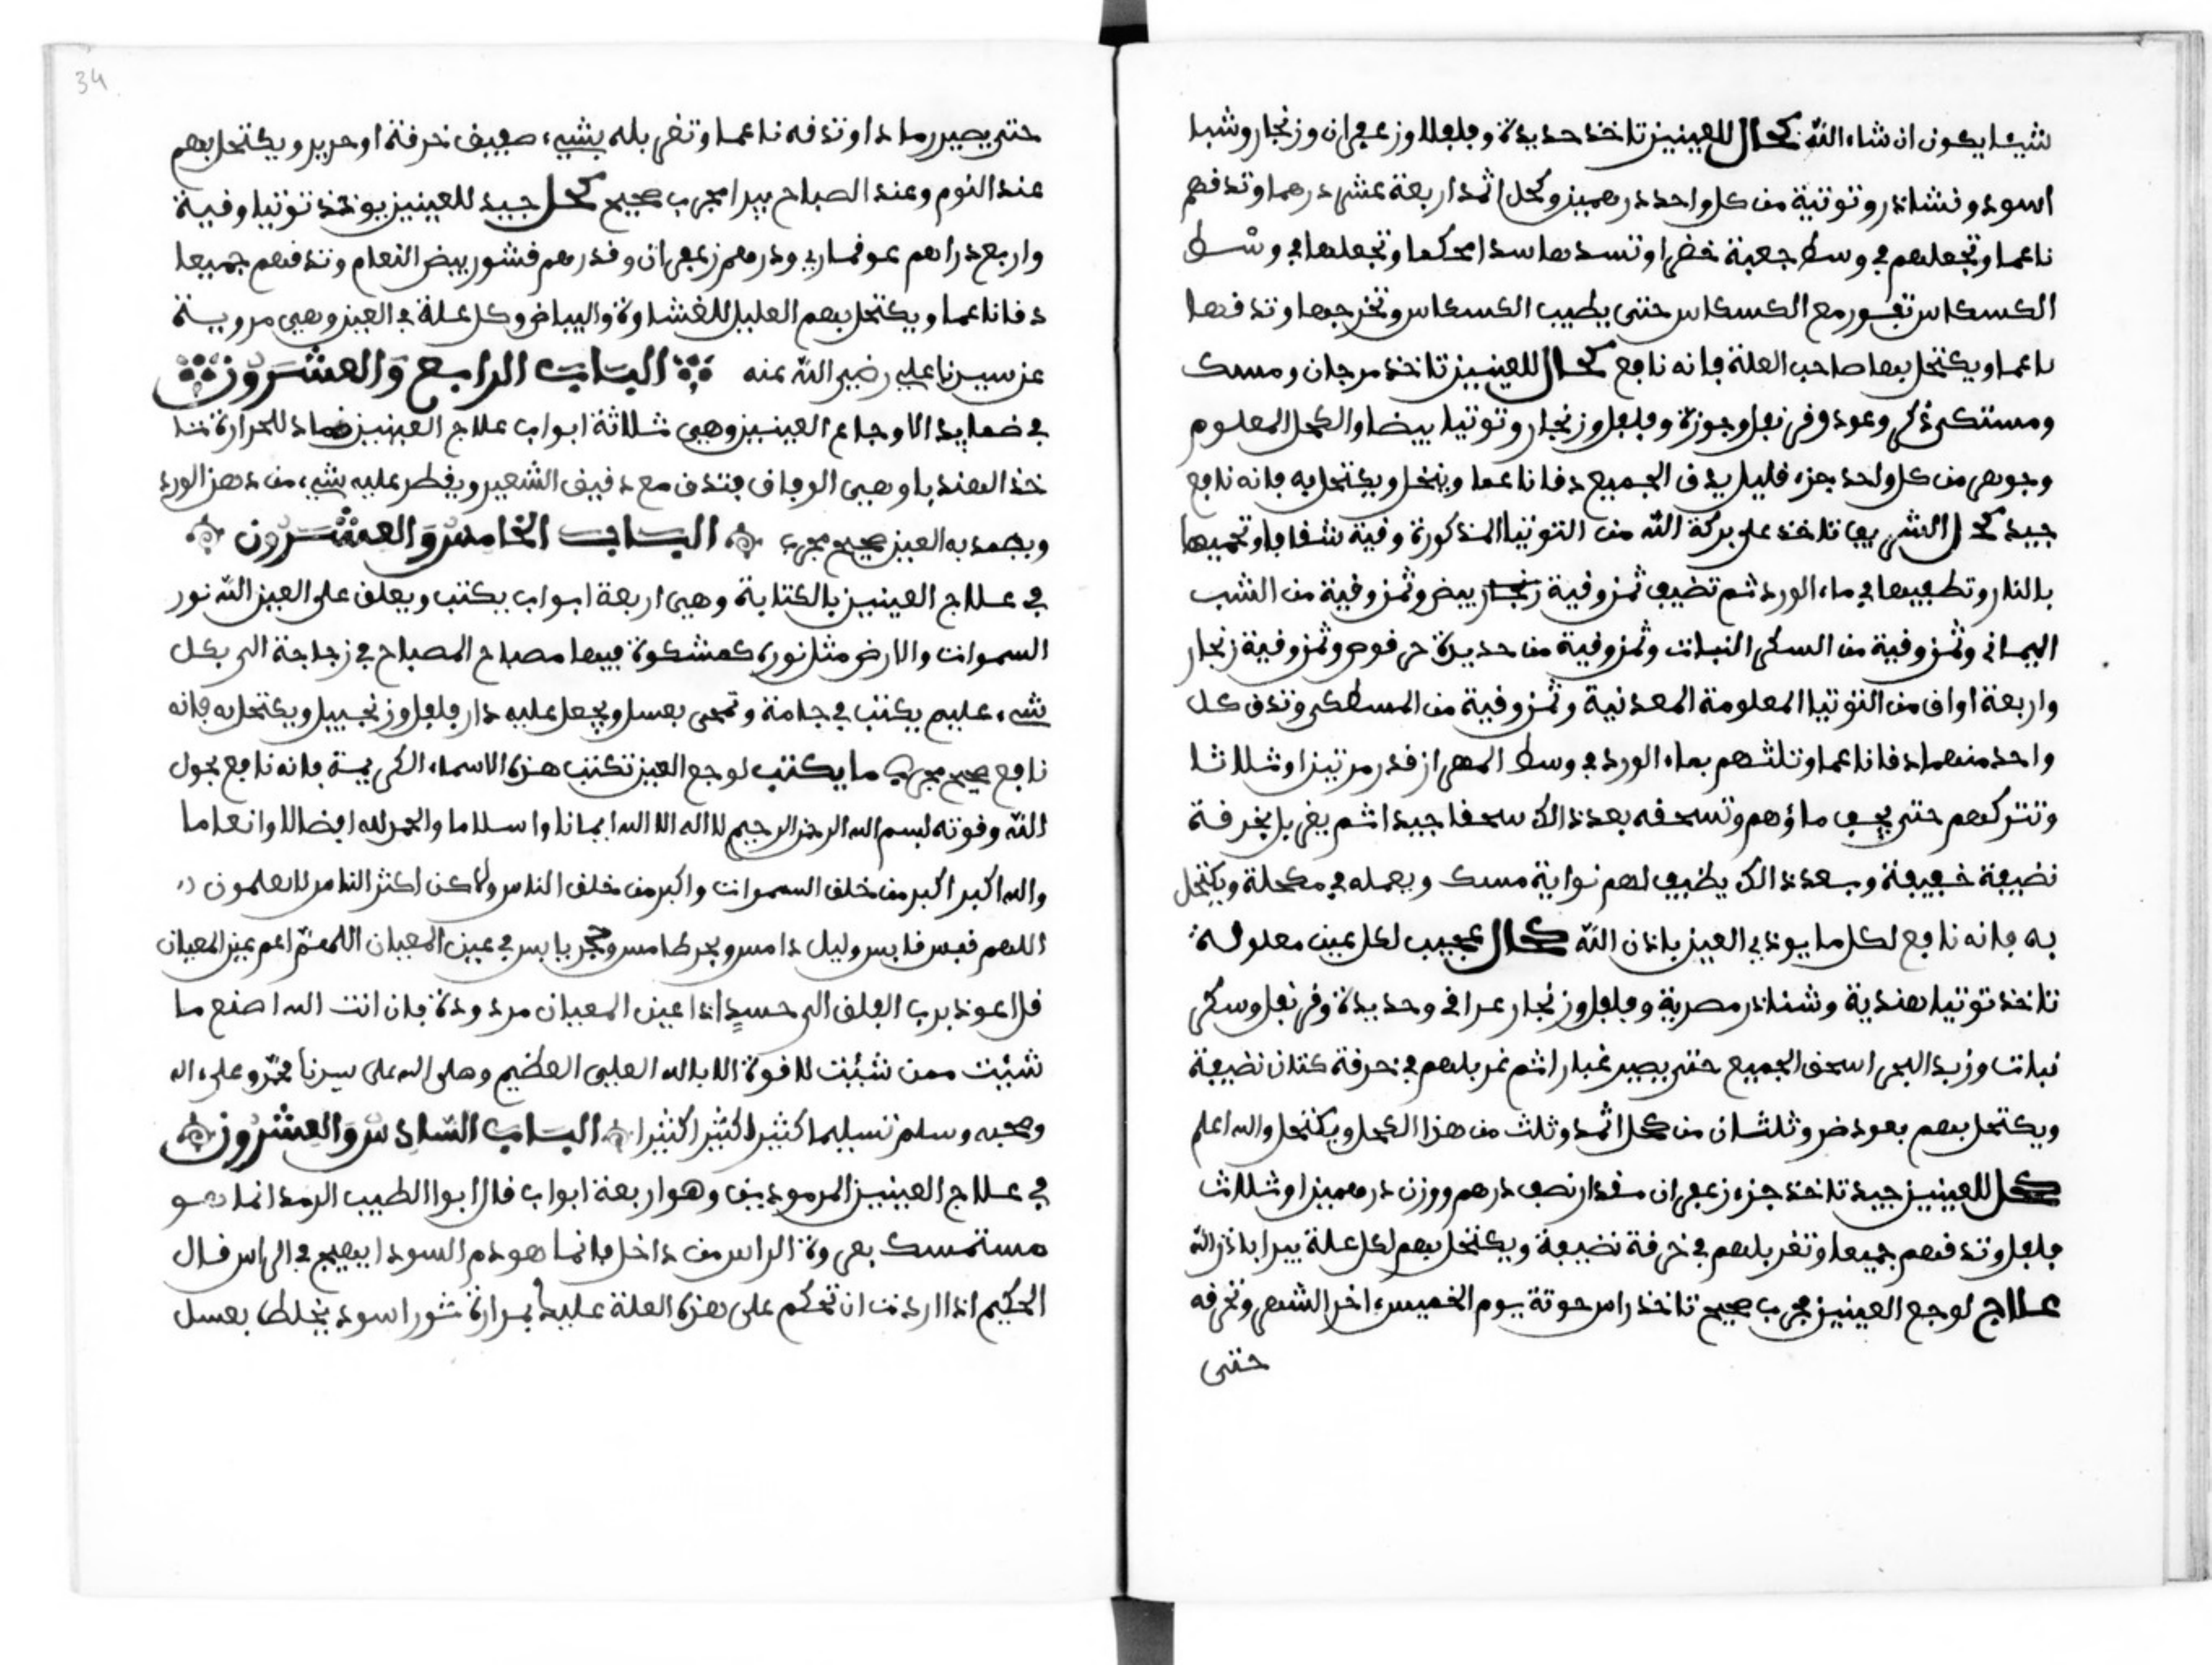 شيئا يكون ان شاء الله كحال للعينين تاخذ حديدة وفلفلا وزعفران وزنجار وشبا
اسود ونشاندر وتوتية من كل واحد درهمين وكحل اثمد اربعة عشر درهما وتدقهم
ناعما وتجعلهم في وسط جعبة خضرا وتسدها سدا محكما وتجعلها في وسط
الكسكاس تفور مع الكسكاس حتى يطيب الكسكاس وتخرجها وتدقها
ناعما ويكتحل بها صاحب العلة فانه نافع كحال للعينين تاخذ مرجان ومسك
ومستكى ذكر وعود وقرنفل وجوزة وفلفل وزنجار وتوتيا بيضا والكحل المعلوم
وجوهر من كل واحد جزء قليل يدق الجميع دقا ناعما وينخل ويكتحل به فانه نافع
جيد كحل الشريف تاخذ على بركة الله من التوتيا المذكورة وقية شفافا وتحميها
بالنار وتطفيها في ماء الورد ثم تضيف ثمن وقية زنجار بيض وثمن وقية من الشب
اليماني وثمن وقية من السكر النبات وثمن وقية من حديدة حرقوص وثمن وقية زنجار
واربعة اواق من التوتيا المعلومة المعدنية وثمن وقية من المسطكى وتدق كل
واحد منهما دقا ناعما وتلثهم بماء الورد في وسط المهراز قدر مرتين او ثلاثا
وتتركهم حتى يجف ماؤهم وتسحقه بعد ذالك سحقا جيدا ثم يغربل بخرقة
نضيفة خفيفة وبعد ذالك يضيف لهم نواية مسك ويعمله في مكحلة ويكتحل
به فانه نافع لكل ما يوذي العين باذن الله كحال عجيب لكل عين معلولة
تاخذ توتيا هندية وشناذر مصرية وفلفل وزنجار عراقي وحديدة وقرنفل وسكر
نبات وزبد البحر اسحق الجميع حتى يصير غبارا ثم غربلهم في خرقة كتان نضيفة
ويكتحل بهم بعود ضرو ثلثان من كحل اثمد وثلث من هذا الكحل ويكتحل والله اعلم
كحل للعينين جيد تاخذ جزء زعفران مقدار نصف درهم ووزن درهمين او ثلاث
فلفل وتدقهم جميعا وتغربلهم في خرقة نضيفة ويكتحل بهم لكل علة يبرا باذن الله
علاج لوجع العينين مجرب صحيح تاخذ راس حوتة يوم الخميس اخر الشهر وتحرقه
حتى
34
حتى يصير رمادا وتدقه ناعما وتغربله بشيء صفيف خرقة او حرير ويكتحل بهم
عند النوم وعند الصباح يبرا مجرب صحيح كحل جيد للعينين يوخذ توتيا وقية
واربع دراهم عوقماري ودرهم زعفران وقدرهم قشور بيض النعام وتدقهم جميعا
دقا ناعما ويكتحل بهم العليل للغشاوة والبياض وكل علة في العين وهي مروية
عن سيدنا علي رضي الله عنه الباب الرابع والعشرون
في ضمايد الاوجاع العينين وهي ثلاثة ابواب علاج العينين ضماد للحرارة تا
خذ الهندبا وهي الوفاف فتدق مع دقيق الشعير ويقطر عليه شيء من دهن الورد
ويضمد به العين صحيح مجرب الباب الخامس والعشرون
في علاج العينين بالكتابة وهي اربعة ابواب يكتب ويعلق على العين الله نور
السموات والارض مثل نوره كمشكوة فيها مصباح المصباح في زجاجة الى بكل
شيء عليم يكتب في جامة وتمحى بعسل ويجعل عليه دار فلفل وزنجبيل ويكتحل به فانه
نافع صحيح مجرب ما يكتب لوجع العين تكتب هذه الاسماء الكريمة فانه نافع بحول
الله وقوته بسم الله الرحمن الرحيم لا اله الا الله ايمانا واسلاما والحمد لله افضالا وانعاما
والله اكبر اكبر من خلق السموات واكبر من خلق الناس ولاكن اكثر الناس لا يعلمون
اللهم قبس قابس وليل دامس وبحر طامس وحجر يابس في عين المعيان اللهم اعم عين المعيان
قل اعوذ برب الفلق الى حسد اذا عين المعيان مردودة فان انت الله اصنع ما
شئت ممن شئت لا قوة الا بالله العلي العظيم وصلى الله على سيدنا محمد وعلى اله
وصحبه وسلم تسليما كثيرا كثيرا كثيرا الباب السادس والعشرون
في علاج العينين المرموذين وهو اربعة ابواب قال ابوا الطبيب الرمد انما هو
مستمسك بعروة الراس من داخل فانما هو دم السودا يهيج في الراس قال
الحكيم اذا اردت ان تحكم على هذه العلة عليك بمرارة ثور اسود يخلط بعسل